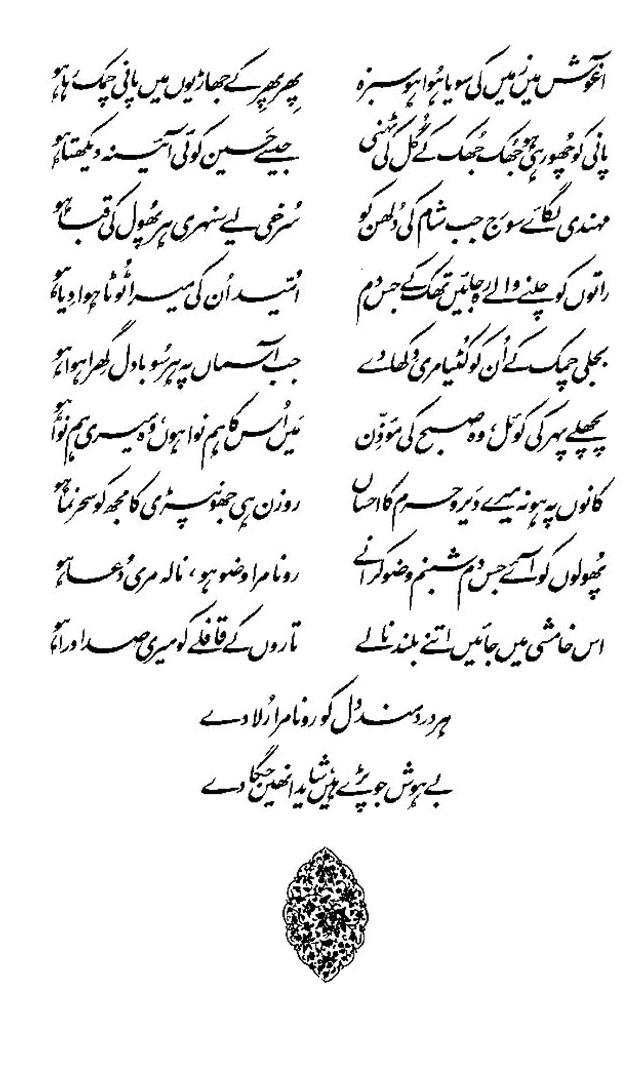 آغوش میں زمیں کی سویا ہُوا ہو سبزہ پھِر پھِر کے جھاڑیوں میں پانی چمک رہا ہو
پانی کو چھُو رہی ہو جھُک جھُک کے گُل کی ٹہنی جیسے حَسین کوئی آئینہ دیکھتا ہو
مہندی لگائے سورج جب شام کی دُلھن کو سُرخی لیے سنہری ہر پھُول کی قبا ہو
راتوں کو چلنے والے رہ جائیں تھک کے جس دم اُمّید اُن کی میرا ٹُوٹا ہوا دِیا ہو
بجلی چمک کے اُن کو کُٹیا مری دکھا دے جب آسماں پہ ہر سُو بادل گھِرا ہوا ہو
پچھلے پہر کی کوئل، وہ صبح کی مؤذِّن مَیں اُس کا ہم نوا ہوں، وہ میری ہم نوا ہو
کانوں پہ ہو نہ میرے دَیر و حرم کا احساں روزن ہی جھونپڑی کا مجھ کو سحر نما ہو
پھُولوں کو آئے جس دم شبنم وضو کرانے رونا مرا وضو ہو، نالہ مری دُعا ہو
اس خامشی میں جائیں اتنے بلند نالے تاروں کے قافلے کو میری صدا درا ہو
ہر دردمند دل کو رونا مرا رُلا دے
بے ہوش جو پڑے ہیں، شاید انھیں جگا دے